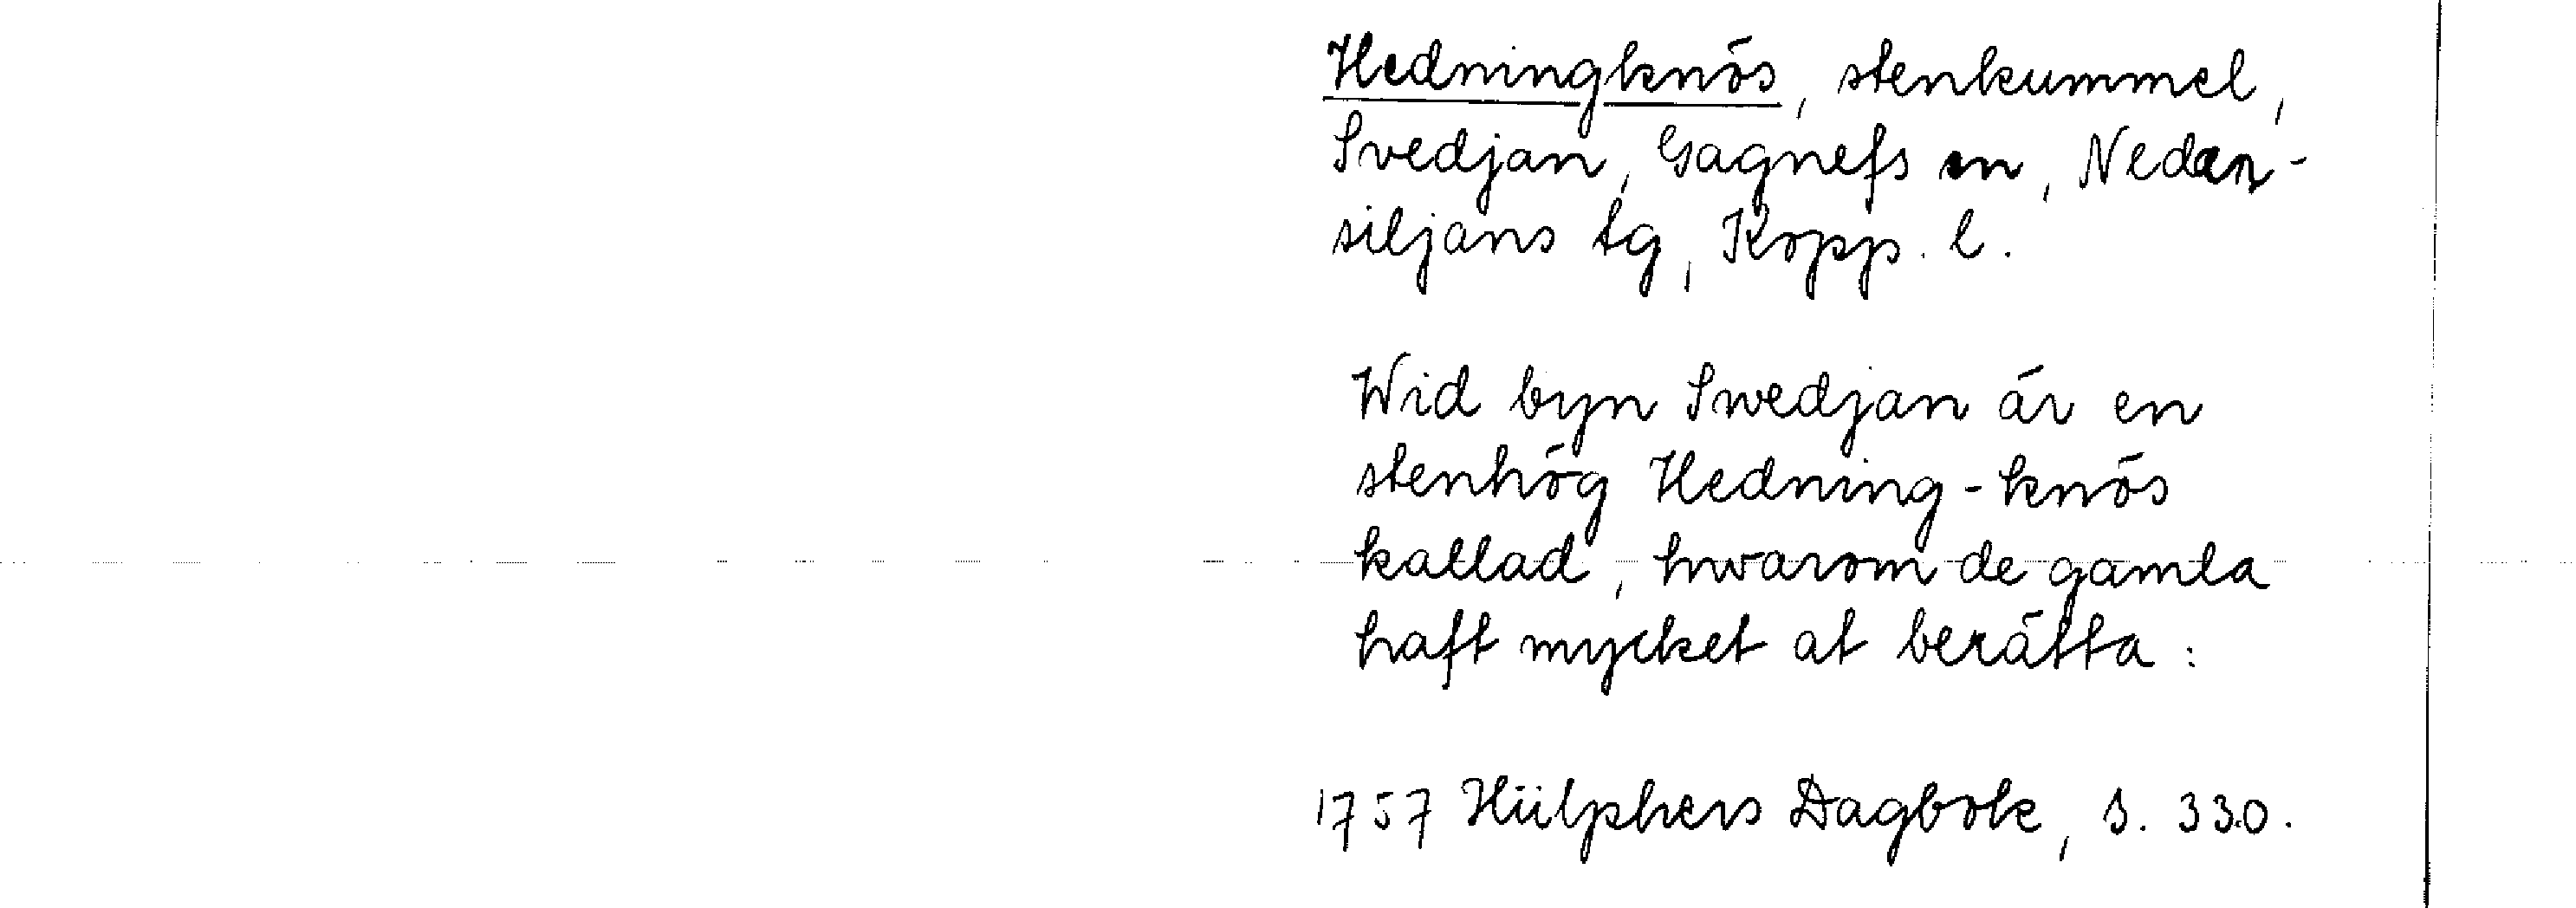 Hedningknös, stenkummel,
Svedjan, Gagnefs sn, Nedan-
siljans tg, Kopp. l.
Wid byn Swedjan är en
stenhög Hedning-knös
kallad, hwarom de gamla
haft mycket at berätta:
1757 Hülphers Dagbok, s. 330.